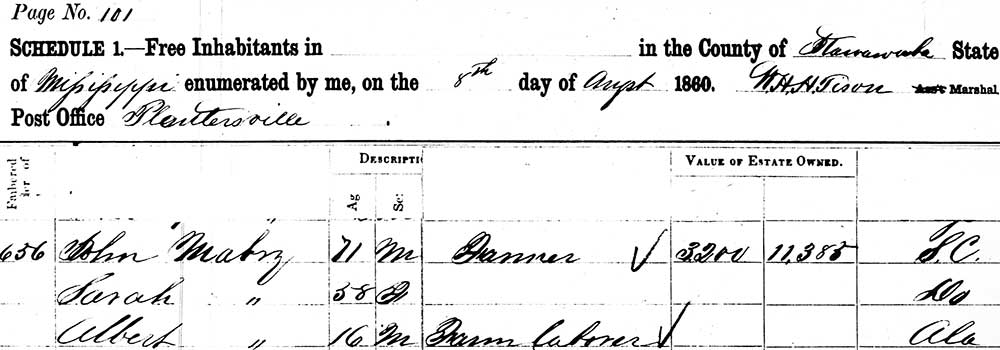 Page No. 101
SCHEDULE 1.—Free Inhabitants in in the County of Itawamba State
of Mississippi enumerated by me, on the 8th day of Augst 1860. W.H.H. Tison Ass't Marshal.
Post Office Plantersville .
DESCRIPTI VALUE OF ESTATE OWNED.
Ag Se:
656 John Mabry 71 M Farmer ✓ 3200 11,385 S.C.
Sarah " 58 F Do
Albert " 16 M Farm laborer ✓ Ala